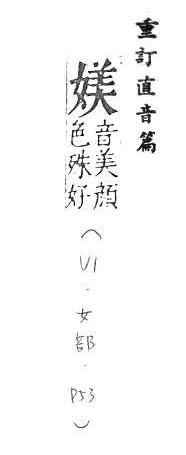 重訂直音篇
媄音美顔色殊好
(V1.女部.P53)